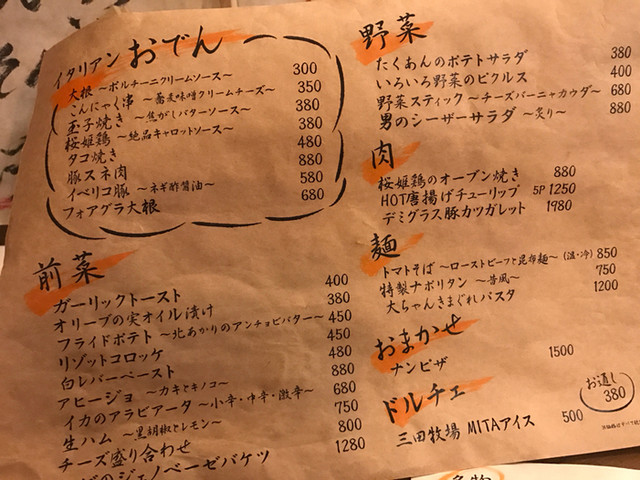 イタリアン おでん
大根 〜ポルチーニクリームソース〜 300
こんにゃく串 〜蕎麦味噌クリームチーズ〜 350
玉子焼き 〜焦がしバターソース〜 380
桜姫鶏 〜絶品キャロットソース〜 380
タコ焼き 480
豚スネ肉 880
イベリコ豚 〜ネギ酢醤油〜 580
フォアグラ大根 680
前菜
ガーリックトースト 400
オリーブの実オイル漬け 380
フライドポテト 〜北あかりのアンチョビバター〜 450
リゾットコロッケ 450
白レバーペースト 480
アヒージョ 〜カキとキノコ〜 880
イカのアラビアータ 〜小辛・中辛・激辛〜 680
生ハム 〜黒胡椒とレモン〜 750
チーズ盛り合わせ 800
のジェノベーゼバケツ 1280
野菜
たくあんのポテトサラダ 380
いろいろ野菜のピクルス 400
野菜スティック 〜チーズバーニャカウダ〜 680
男のシーザーサラダ 〜炙り〜 880
肉
桜姫鶏のオーブン焼き 880
HOT唐揚げチューリップ 5P 1250
デミグラス豚カツガレット 1980
麺
トマトそば 〜ローストビーフと昆布麺〜 (温・冷) 850
特製ナポリタン 〜昔風〜 750
大ちゃんきまぐれパスタ 1200
おまかせ
ナンピザ 1500
ドルチェ
三田牧場 MITAアイス 500
お通し
380